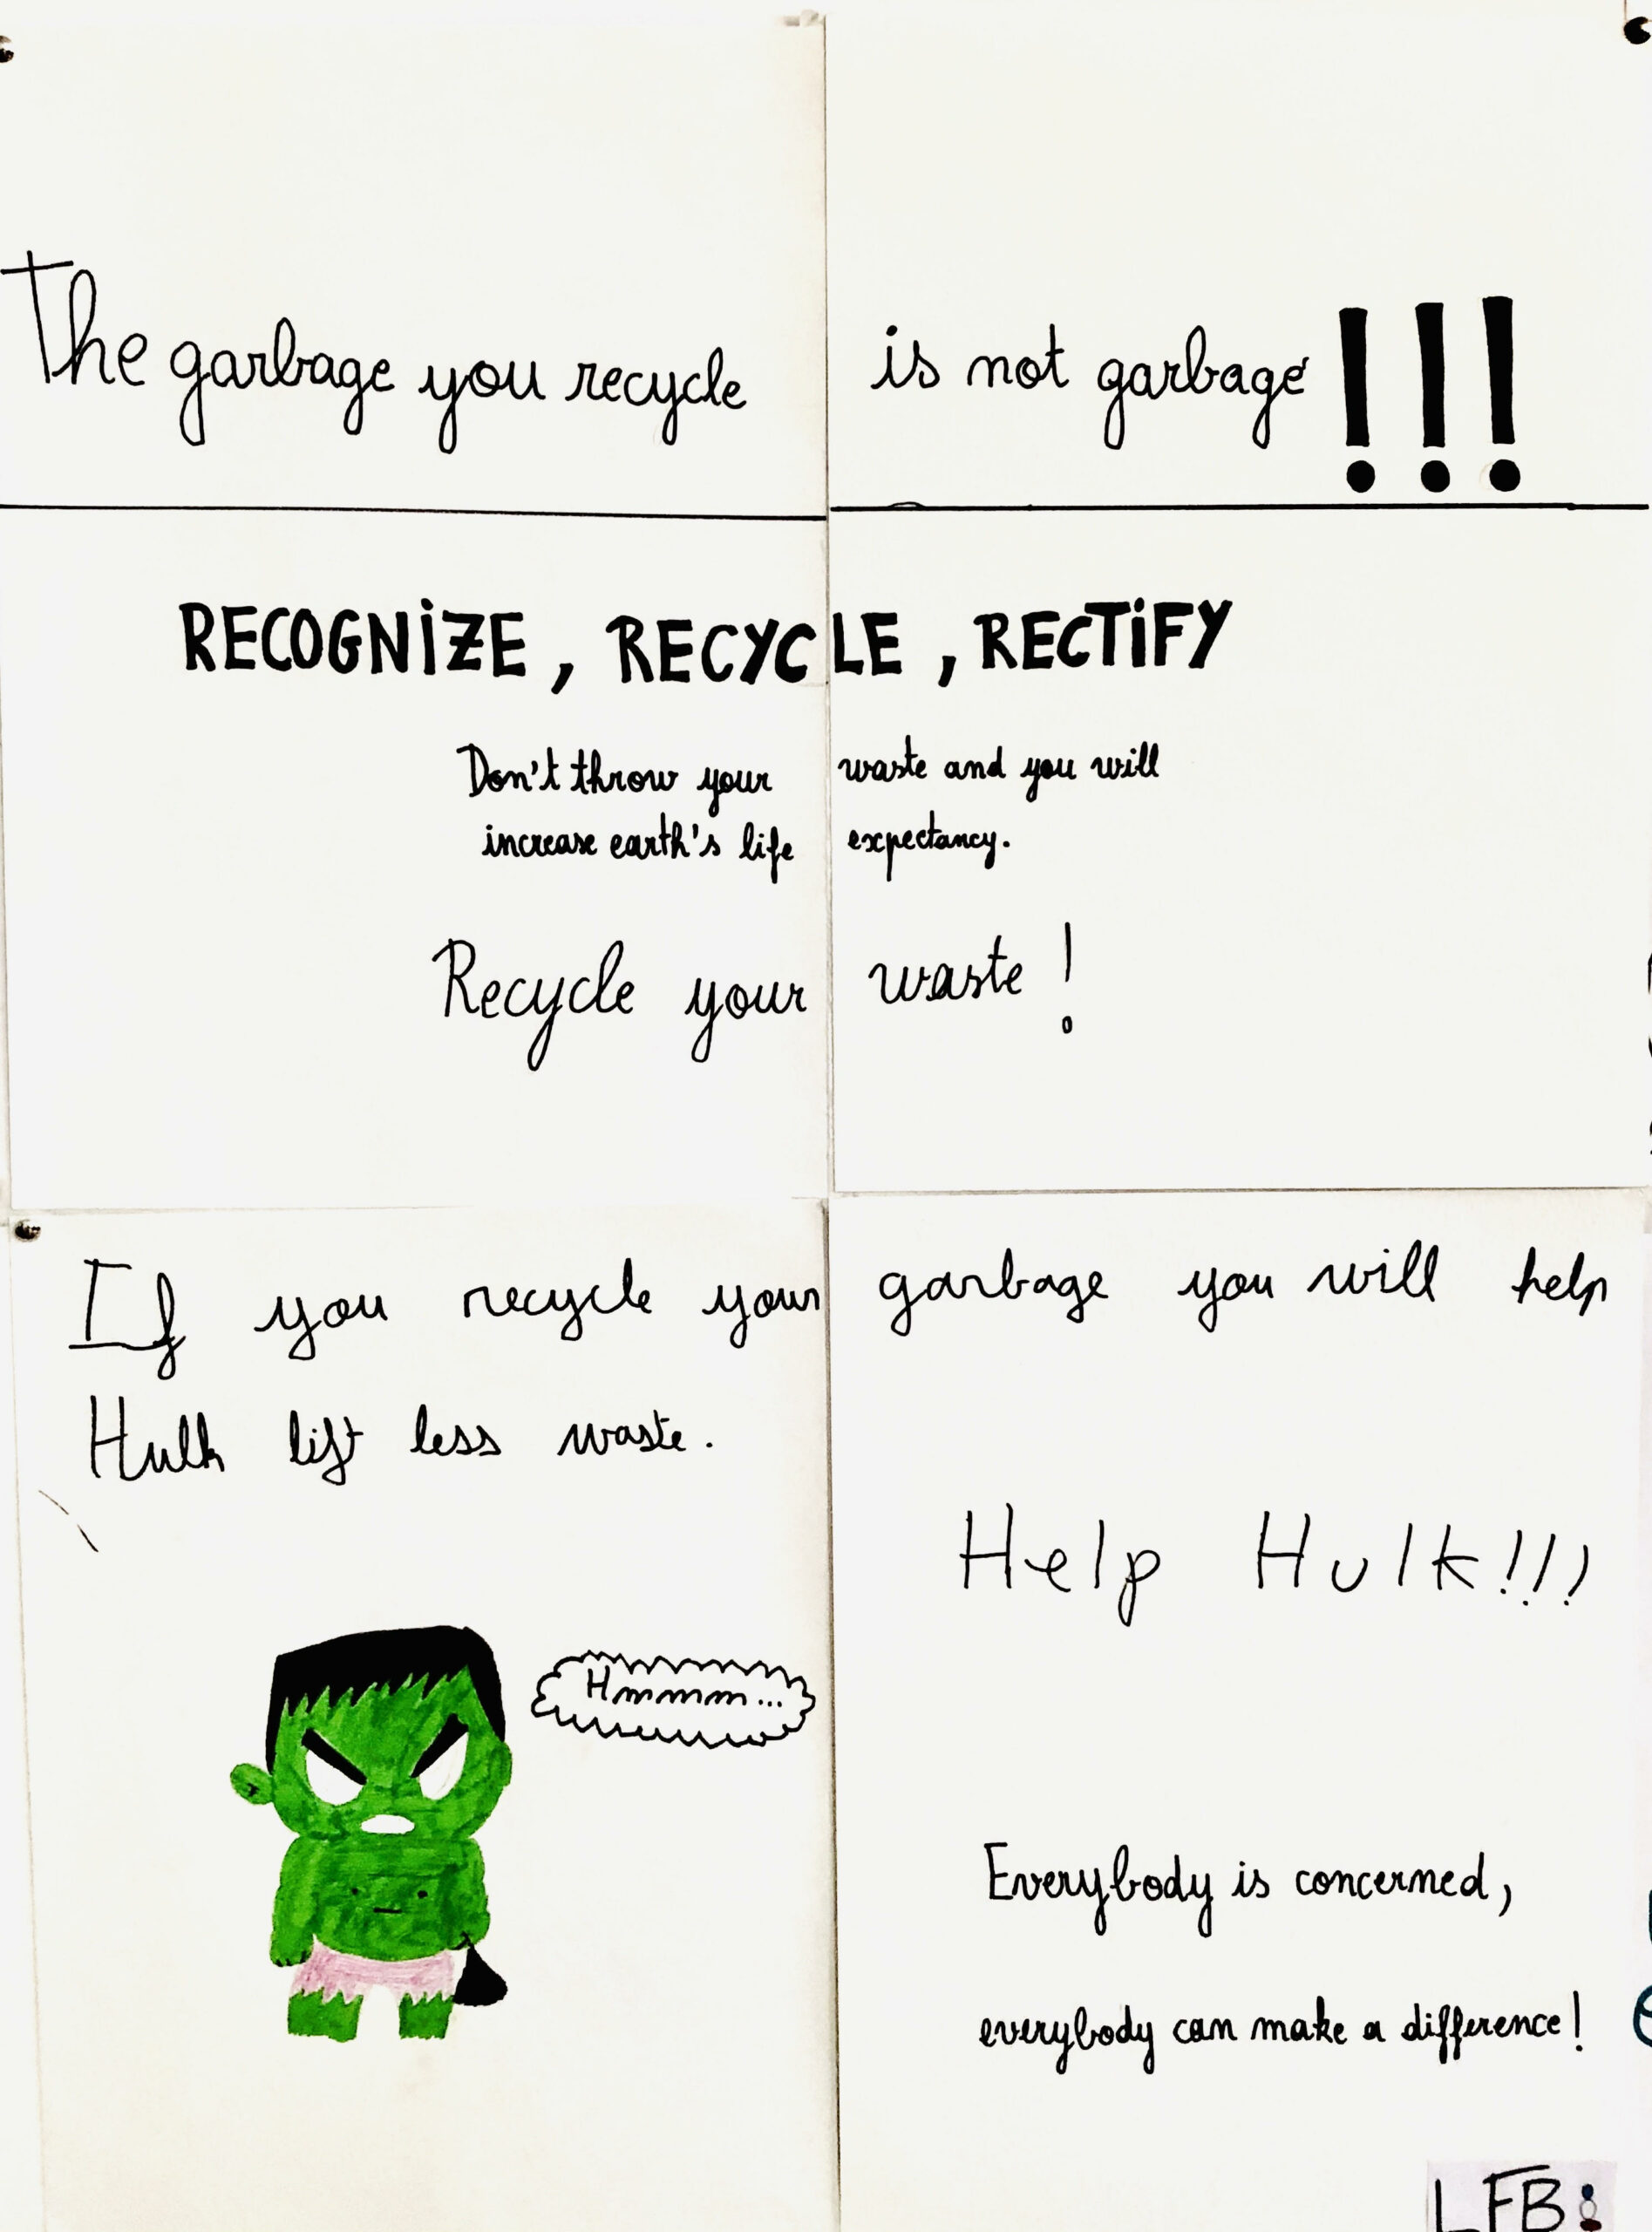 The garbage you recycle is not garbage!!!
RECOGNIZE, RECYCLE, RECTIFY
Don't throw your waste and you will
increase earth's life expectancy.
Recycle your waste!
If you recycle your garbage you will help
Hulk lift less waste.
Help Hulk!!!
Hmmmm...
Everybody is concerned,
everybody can make a difference!
LFB